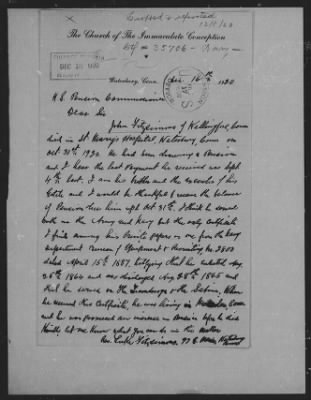 The Church of The Immaculate Conception
Ctf # 35706 - Navy
Waterbury, Conn. Dec 16th 1930
U.S. Pension Commissioner
Dear Sir
John Fitzsimons of Wallingford, Conn
died in St Mary's Hospital, Waterbury, Conn on
Oct 31st 1930. He had been drawing a Pension
and I hear the last payment he received was Sept
4th last. I am his brother and the executor of his
Estate and I would be thankful to the balance
of Pension due him up to Oct 31st. I think he served
both in the Army and Navy but the only certificate
I find among his private papers is one from the Navy
Department Bureau of Equipment & Recruiting No 2803
dated April 15th 1887, certifying that he enlisted Aug
26th 1864 and was discharged Aug 28th 1865 and
that he served on the and the . When
he secured this certificate, he was living in Conn
and he was promised an increase in Pension before he died
Kindly let me know what you can do in this matter
Rev. Luke Fitzsimons. Waterbury